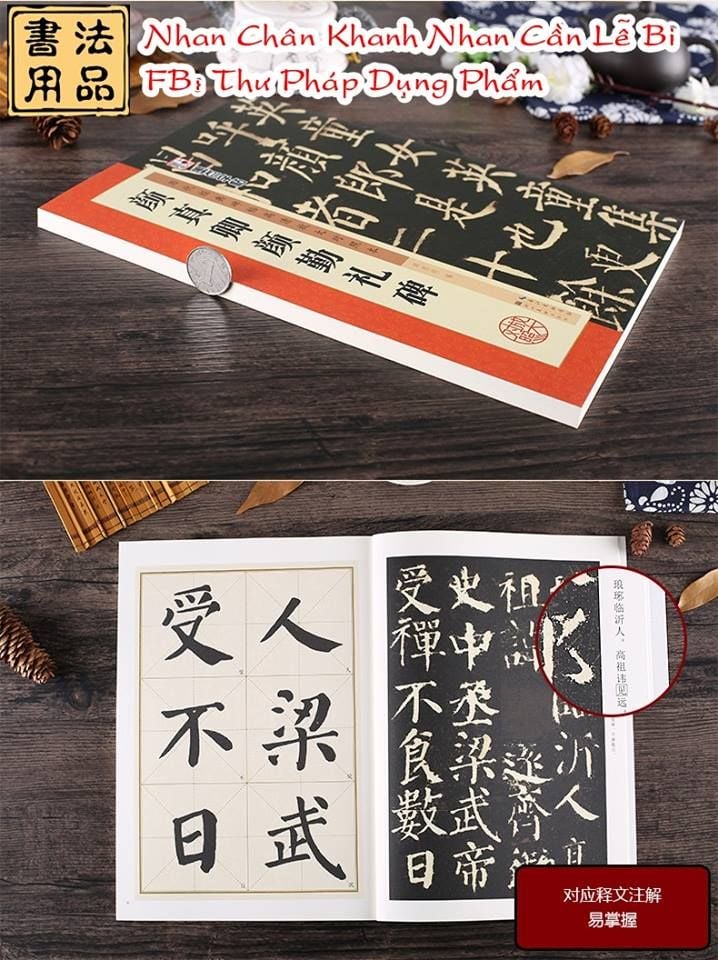 書法
用品
Nhan Chân Khanh Nhan Cần Lễ Bi
FB: Thư Pháp Dụng Phẩm
英童女英童集
颜真卿颜勤礼碑
人梁武
受不日
琅琊临沂人。高祖讳见远，
臨沂人高
祖諱
逐齊
史中丞梁武帝
受禪不食數日
对应释文注解
易掌握